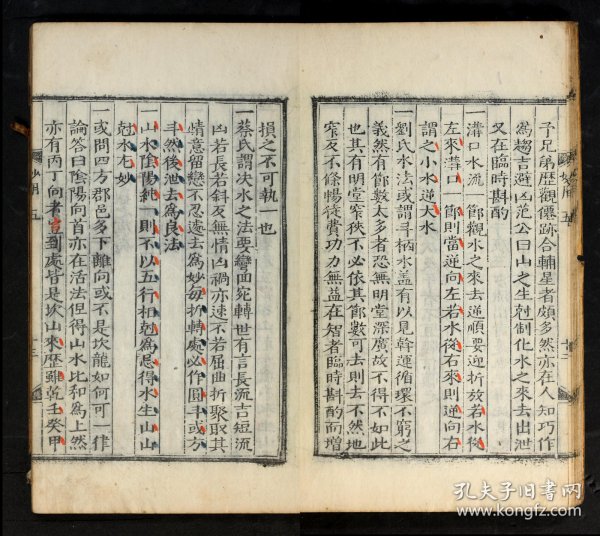 子兄弟歴觀僊跡合輔星者頗多然亦在人知巧作
爲趨吉避凶范公曰山之生尅制化水之來去出泄
又在臨時斟酌
一溝口水流一節觀水之來去逆順要迎折故若水從
左來溝口一節則當逆向左若水從右來則逆向右
謂之小水逆大水
一劉氏水法或謂斗柄水盖有以見斡運循環不窮之
義然有節數太多者恐無明堂深廣故不得不如此
也其有明堂窄狹不必依其節數可去則去不然地
窄反不條暢徒費功力無益在智者臨時斟酌而增
損之不可執一也
一蔡氏謂決水之法要彎曲宛轉世有言長流吉短流
凶若長若斜反無情凶禍亦速不若屈曲折聚取其
情意留戀不忍遽去爲妙每折轉處必作圓斗或方
斗然後泄去爲良法
一山水陰陽純一則不以五行相尅爲忌得水生山山
尅水尤妙
一或問四方郡邑多下離向或不是坎龍如何可一律
論答曰陰陽向首亦在活法但得山水比和爲上然
亦有丙丁向者豈到處皆是坎山來歷雖乾壬癸甲
妙用 五
十二
妙用 五
十三
孔夫子旧书网
www.kongfz.com